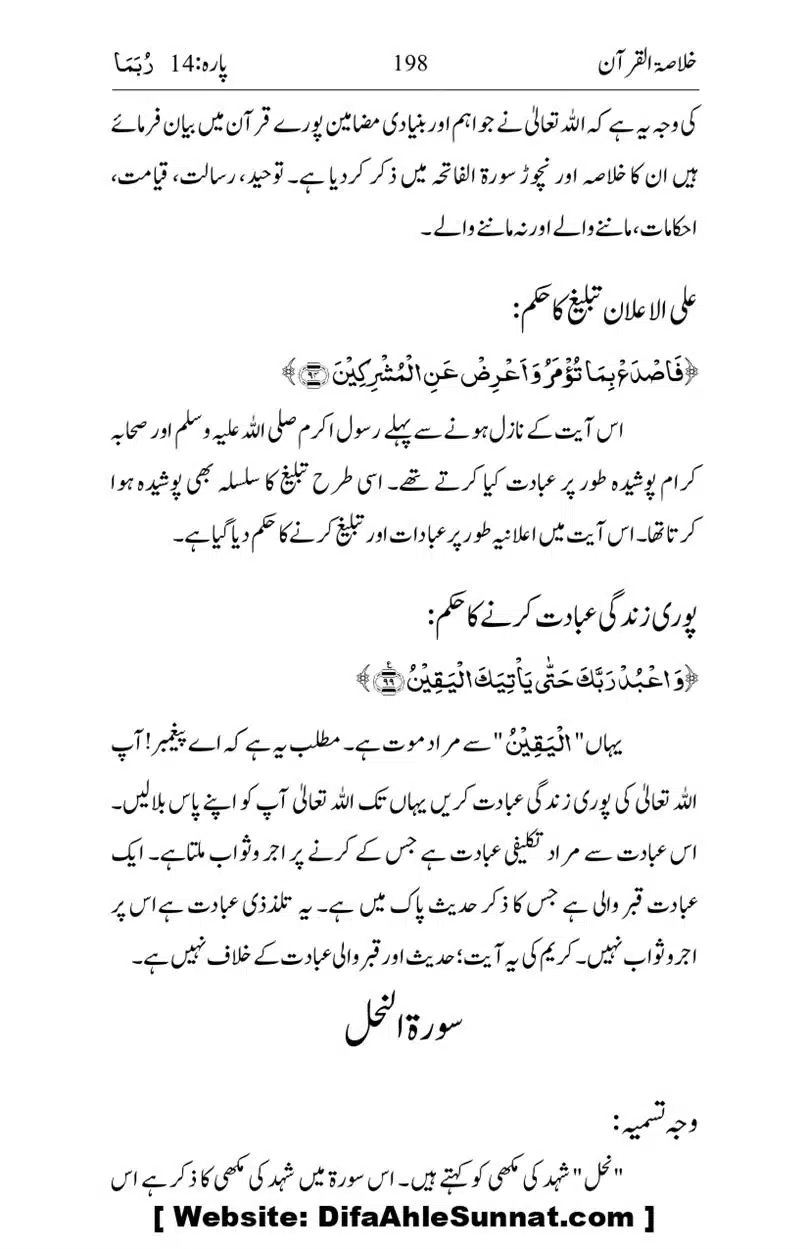 خلاصۃ القرآن 198 پارہ:14 رُبَمَا
کی وجہ یہ ہے کہ اللہ تعالیٰ نے جو اہم اور بنیادی مضامین پورے قرآن میں بیان فرمائے
ہیں ان کا خلاصہ اور نچوڑ سورۃ الفاتحہ میں ذکر کردیا ہے۔ توحید، رسالت، قیامت،
احکامات، ماننے والے اور نہ ماننے والے۔
علی الاعلان تبلیغ کا حکم:
﴿فَاصْدَعْ بِمَا تُؤْمَرُ وَاَعْرِضْ عَنِ الْمُشْرِكِيْنَ ۝۹۴﴾
اس آیت کے نازل ہونے سے پہلے رسول اکرم صلی اللہ علیہ وسلم اور صحابہ
کرام پوشیدہ طور پر عبادت کیا کرتے تھے۔ اسی طرح تبلیغ کا سلسلہ بھی پوشیدہ ہوا
کرتا تھا۔ اس آیت میں اعلانیہ طور پر عبادات اور تبلیغ کرنے کا حکم دیا گیا ہے۔
پوری زندگی عبادت کرنے کا حکم:
﴿وَاعْبُدْ رَبَّكَ حَتّٰى يَاْتِيَكَ الْيَقِيْنُ ۝۹۹ۧ﴾
یہاں "الْيَقِيْنُ" سے مراد موت ہے۔ مطلب یہ ہے کہ اے پیغمبر! آپ
اللہ تعالیٰ کی پوری زندگی عبادت کریں یہاں تک اللہ تعالیٰ آپ کو اپنے پاس بلالیں۔
اس عبادت سے مراد تکلیفی عبادت ہے جس کے کرنے پر اجر وثواب ملتا ہے۔ ایک
عبادت قبر والی ہے جس کا ذکر حدیث پاک میں ہے۔ یہ تلذذی عبادت ہے اس پر
اجر وثواب نہیں۔ کریم کی یہ آیت؛ حدیث اور قبر والی عبادت کے خلاف نہیں ہے۔
سورۃ النحل
وجہ تسمیہ:
"نحل" شہد کی مکھی کو کہتے ہیں۔ اس سورۃ میں شہد کی مکھی کا ذکر ہے اس
[ Website: DifaAhleSunnat.com ]